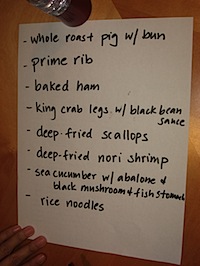 - whole roast pig w/ bun
- prime rib
- baked ham
- king crab legs w/ black bean
sauce
- deep-fried scallops
- deep-fried nori shrimp
- sea cucumber w/ abalone &
black mushroom & fish stomach
- rice noodles